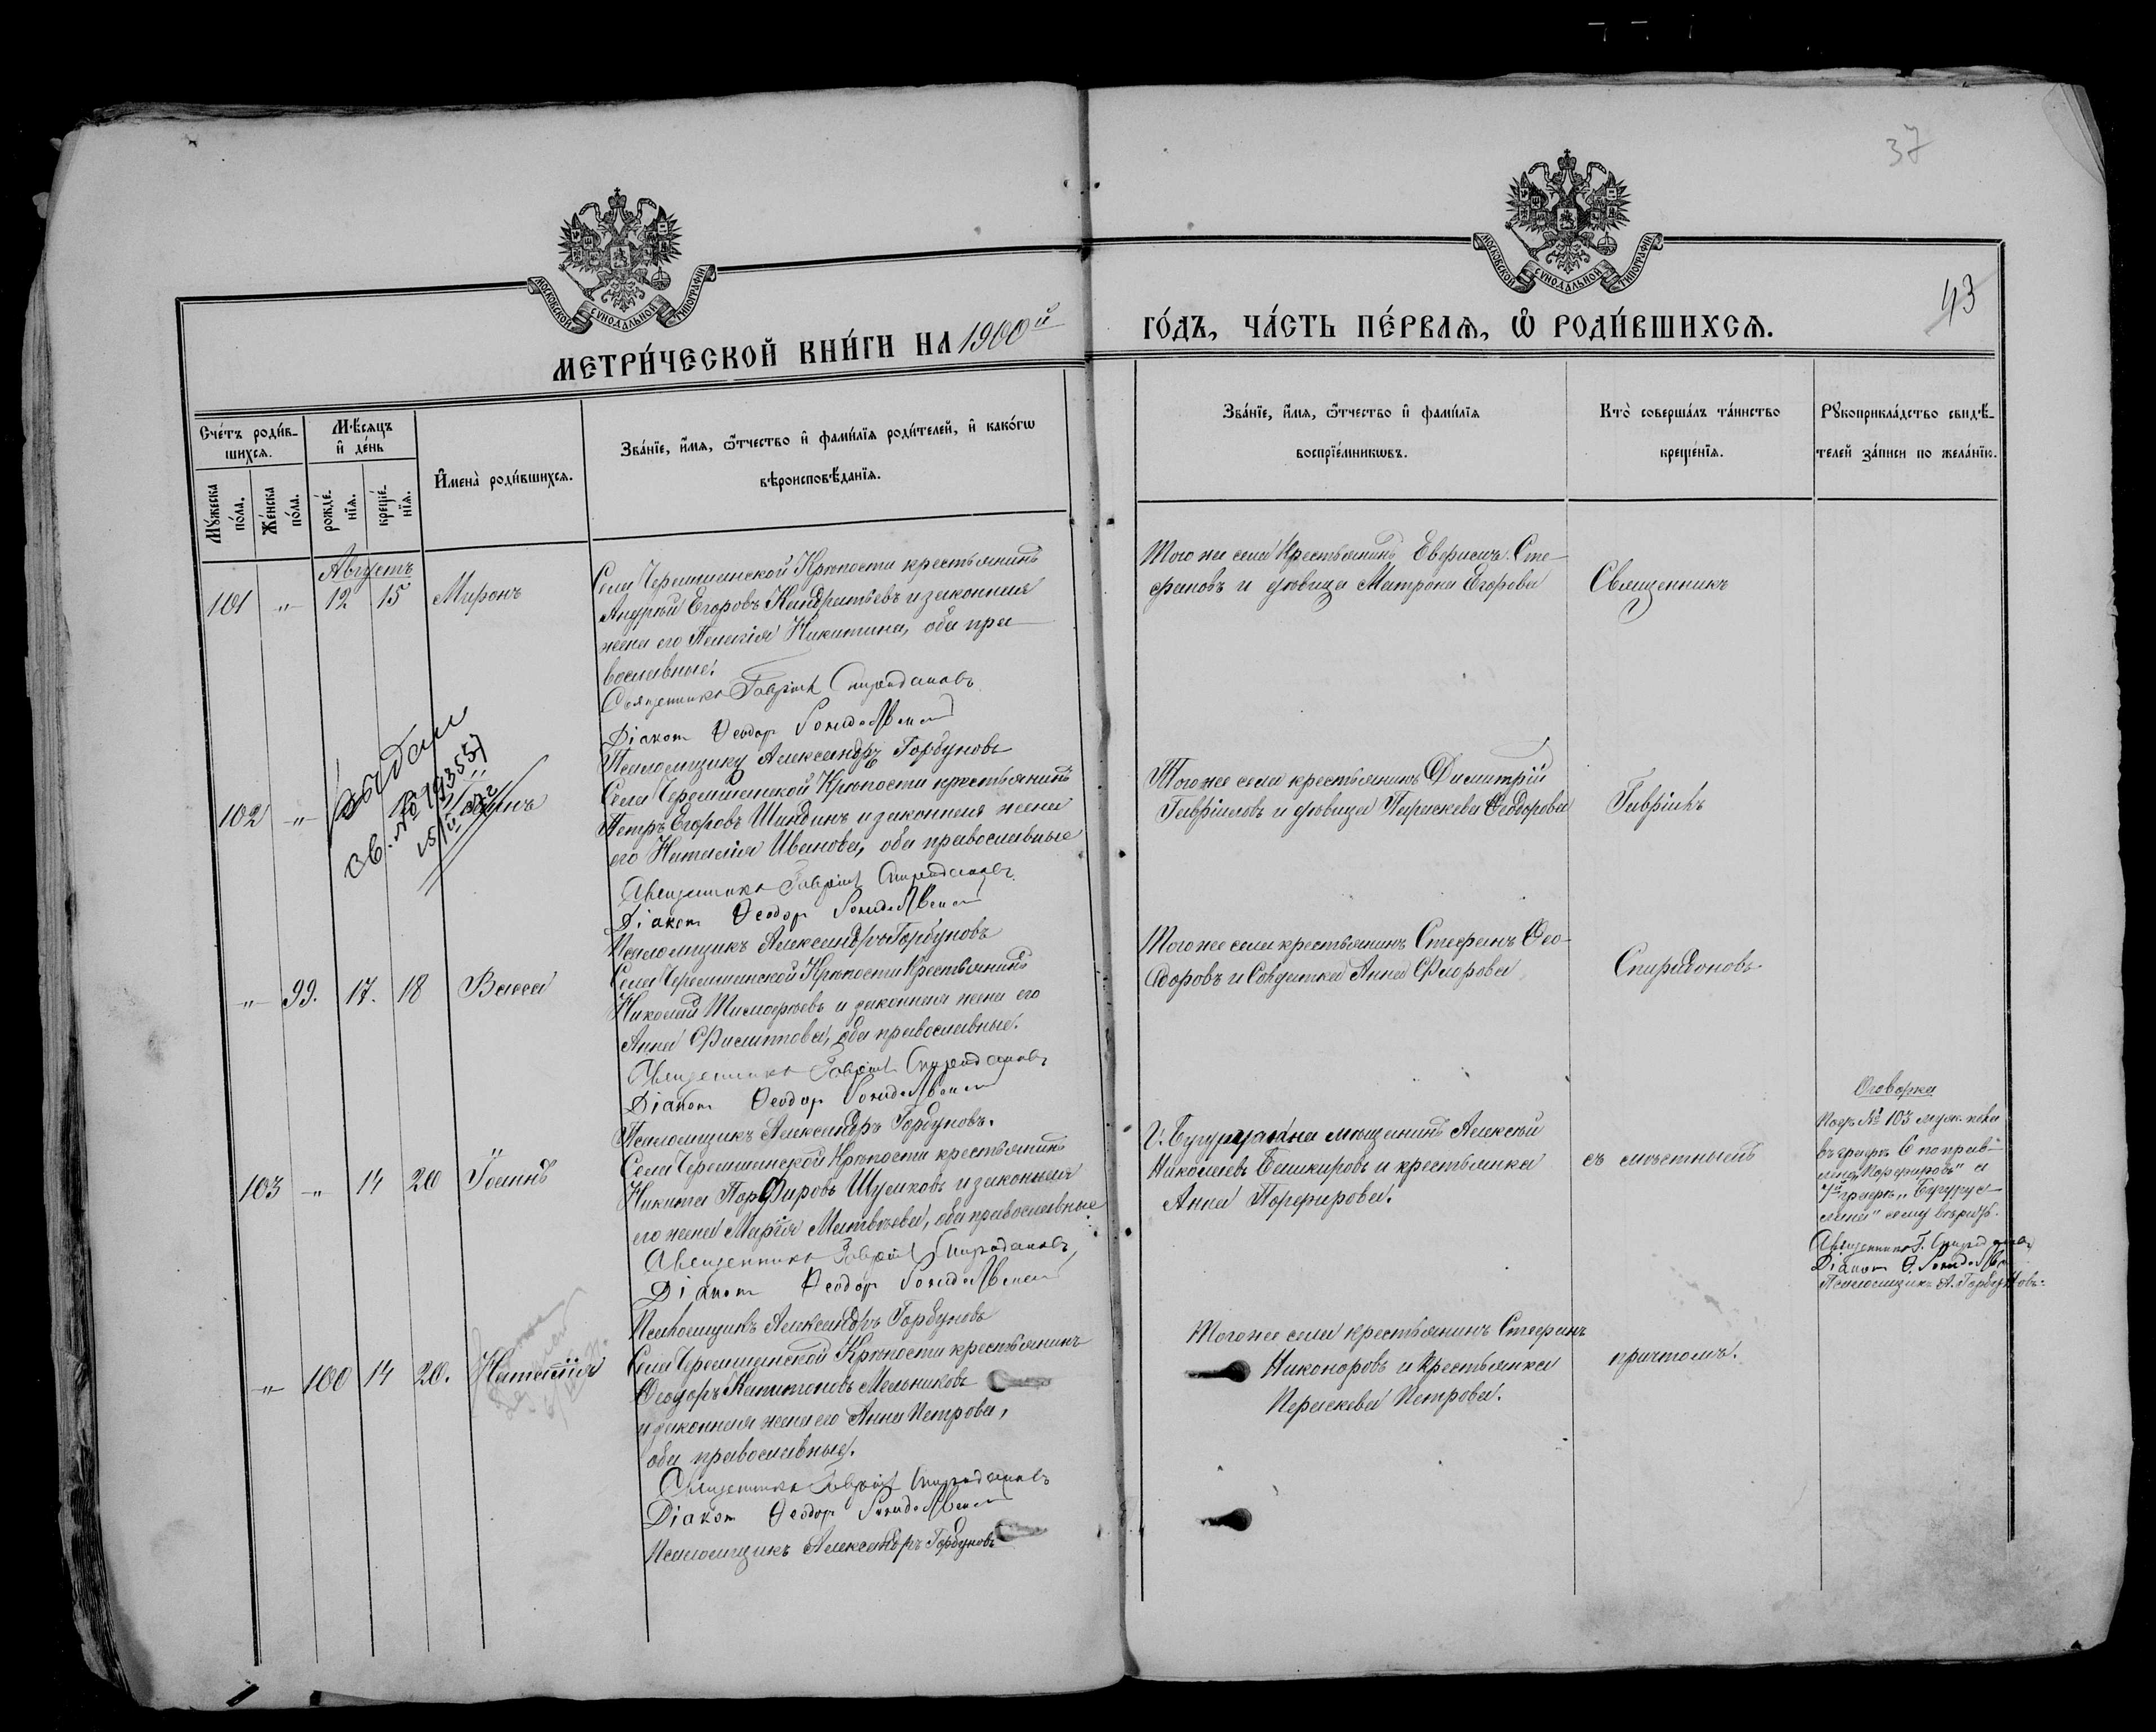 37
43
МОСКОВСКОЙ СѴНОДАЛЬНОЙ ТИПОГРАФІИ
МОСКОВСКОЙ СѴНОДАЛЬНОЙ ТИПОГРАФІИ
МЕТРИ́ЧЕСКОЙ КНИ́ГИ НА 1900й
ГО́ДЪ, ЧА́СТЬ ПЕ́РВАѦ, Ѽ РОДИ́ВШИХСѦ.
Сче́тъ роди́в-
шихсѧ.
Мꙋ́жеска по́ла.
Же́нска по́ла.
Мѣ́сѧцъ и҆ де́нь
рожде́-нїѧ.
креще́-нїѧ.
И҆мена̀ роди́вшихсѧ.
Зва́нїе, и҆́мѧ, ѻ҆́тчество и҆ фами́лїѧ роди́телей, и҆ како́гѡ
вѣроисповѣ́данїѧ.
Зва́нїе, и҆́мѧ, ѻ҆́тчество и҆ фами́лїѧ
воспрїе́мникѡвъ.
Кто̀ соверша́лъ та́инство
креще́нїѧ.
Рꙋкоприкла́дство свидѣ́-
телей за́писи по жела́нїю.
Августъ
101 " 12 15 Миронъ
Села Черемшанской Крѣпости крестьянинъ
Андрей Егоровъ Кандратьевъ и законная
жена его Пелагія Никитина, оба пра-
вославные.
Священникъ Гавріилъ Спиридоновъ
Діаконъ Ѳеодоръ
Псаломщикъ Александръ Горбуновъ
Того же села Крестьянинъ Сте-
фановъ и дѣвица Матрона Егорова
Священникъ
102 "
Села Черемшанской Крѣпости крестьянинъ
Петръ Егоровъ Шиндинъ и законная жена
его Наталія Иванова, оба православные
Священникъ Гавріилъ Спиридоновъ
Діаконъ Ѳеодоръ
Псаломщикъ Александръ Горбуновъ
Того же села крестьянинъ Димитрій
Гавріиловъ и дѣвица Параскева Ѳеодорова
Гавріилъ
" 99. 17. 18 Васса
Села Черемшанской Крѣпости Крестьянинъ
Николай Тимофѣевъ и законная жена его
Анна Филиппова, оба православные.
Священникъ Гавріилъ Спиридоновъ
Діаконъ Ѳеодоръ
Псаломщикъ Александръ Горбуновъ.
Того же села крестьянинъ Стефанъ Ѳео-
доровъ и Солдатка Анна Флорова
Спиридоновъ
103 " 14 20 Іоаннъ
Села Черемшанской Крѣпости крестьянинъ
Никита Порфировъ Шуликовъ и законная
его жена Марія Матвѣева, оба православные
Священникъ Гавріилъ Спиридоновъ
Діаконъ Ѳеодоръ
Псаломщикъ Александръ Горбуновъ
Г. Бугуруслана мѣщанинъ Алексѣй
Николаевъ Башкировъ и крестьянка
Анна Порфирова.
съ мѣстнымъ
Оговорка
Подъ № 103 муж. пола
въ графѣ 6 по прав-
лено „Порфировъ" а
7й графѣ „Бугурус-
лана" сему вѣрить.
Священникъ Г. Спиридоновъ
Діаконъ Ѳ.
Псаломщикъ А. Горбуновъ.
" 100 14 20. Наталія
Села Черемшанской Крѣпости крестьянинъ
Ѳеодоръ Капитоновъ Мельниковъ
и законная жена его Анна Петрова,
оба православные.
Священникъ Гавріилъ Спиридоновъ
Діаконъ Ѳеодоръ
Псаломщикъ Александръ Горбуновъ
Того же села крестьянинъ Стефанъ
Никоноровъ и Крестьянка
Параскева Петрова.
причтомъ.